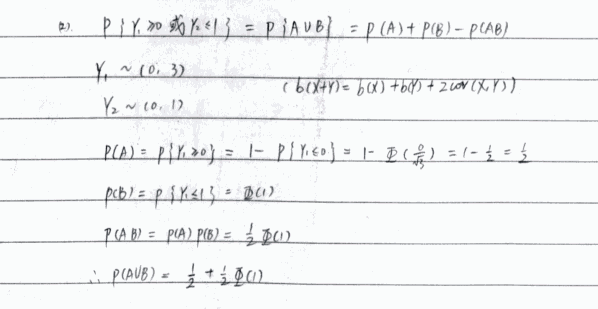 (2). P{Y₁≥0 或 Y₂≤1} = P{A∪B} = P(A)+P(B)-P(AB)
Y₁ ~ (0, 3)
(b(X+Y)= b(X)+b(Y)+2cov(X,Y))
Y₂ ~ (0, 1)
P(A) = P{Y₁≥0} = 1- P{Y₁≤0} = 1- Φ(0/√3) = 1-1/2 = 1/2
P(B) = P{Y₁≤1} = Φ(1)
P(AB) = P(A)P(B) = 1/2 Φ(1)
∴ P(A∪B) = 1/2 + 1/2 Φ(1)